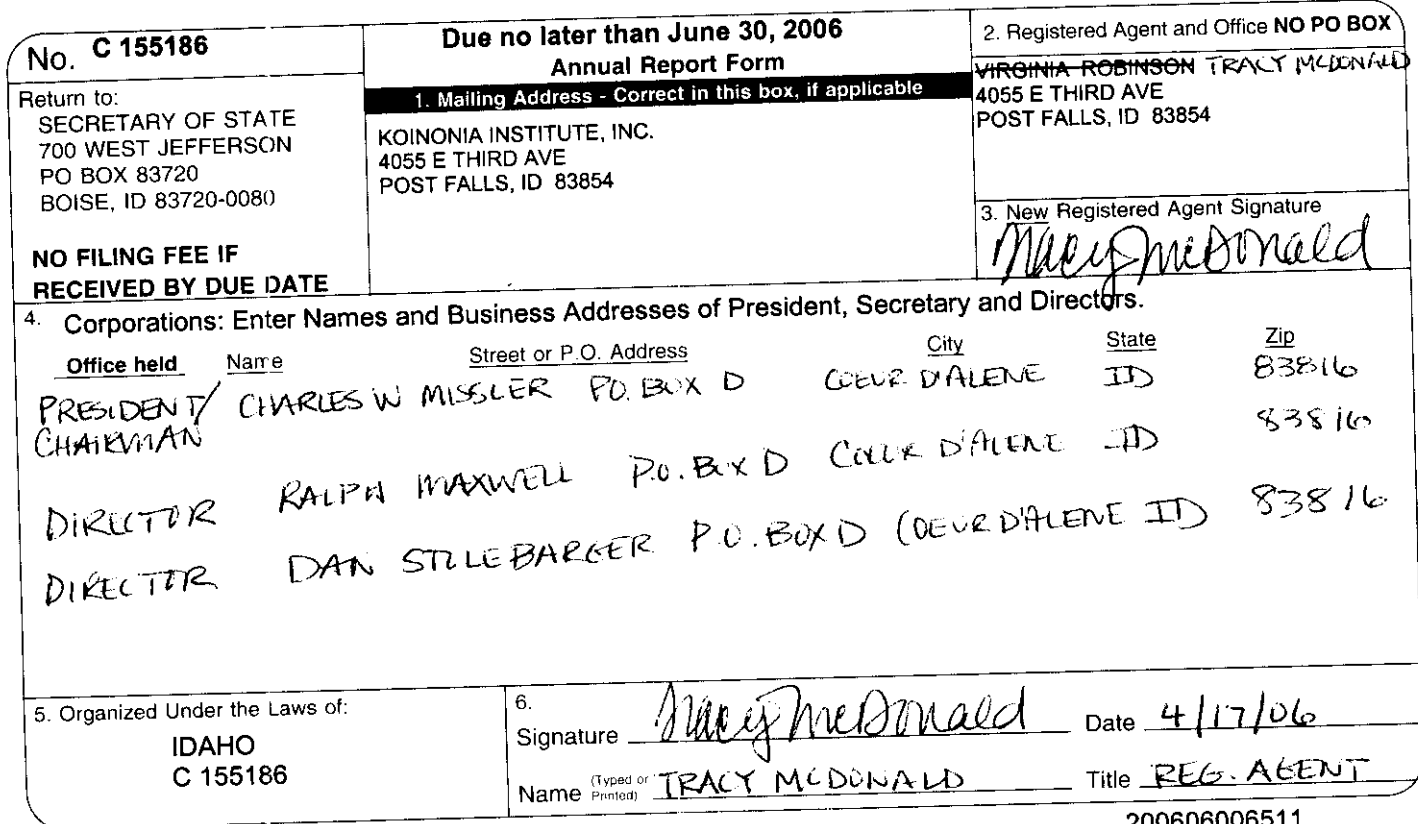 No. C 155186
Return to:
SECRETARY OF STATE
700 WEST JEFFERSON
PO BOX 83720
BOISE, ID 83720-0080
NO FILING FEE IF
RECEIVED BY DUE DATE
Due no later than June 30, 2006
Annual Report Form
1. Mailing Address - Correct in this box, if applicable
KOINONIA INSTITUTE, INC.
4055 E THIRD AVE
POST FALLS, ID 83854
2. Registered Agent and Office NO PO BOX
VIRGINIA ROBINSON TRACY MCDONALD
4055 E THIRD AVE
POST FALLS, ID 83854
3. New Registered Agent Signature
Tracy McDonald
4. Corporations: Enter Names and Business Addresses of President, Secretary and Directors.
Office held Name Street or P.O. Address City State Zip
PRESIDENT/ CHARLES W MISSLER P.O. BOX D COEUR D'ALENE ID 83816
CHAIRMAN
DIRECTOR RALPH MAXWELL P.O. BOX D COEUR D'ALENE ID 83816
DIRECTOR DAN STOLEBARGER P.O. BOX D COEUR D'ALENE ID 83816
5. Organized Under the Laws of:
IDAHO
C 155186
6.
Signature Tracy McDonald Date 4/17/06
Name (Typed or Printed) TRACY MCDONALD Title REG. AGENT
200606006511